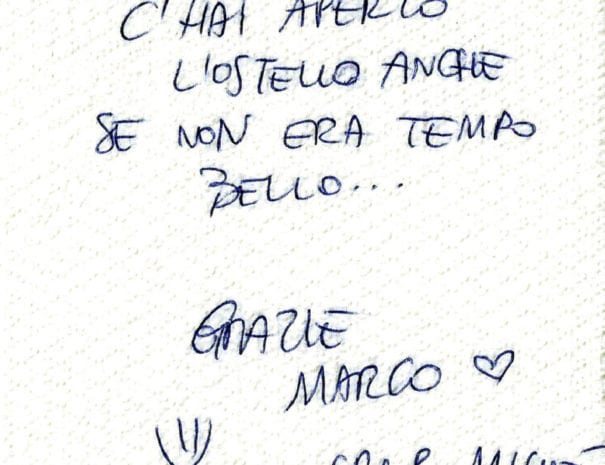 C'HAI APERTO
L'OSTELLO ANCHE
SE NON ERA TEMPO
BELLO...
GRAZIE
MARCO ♡